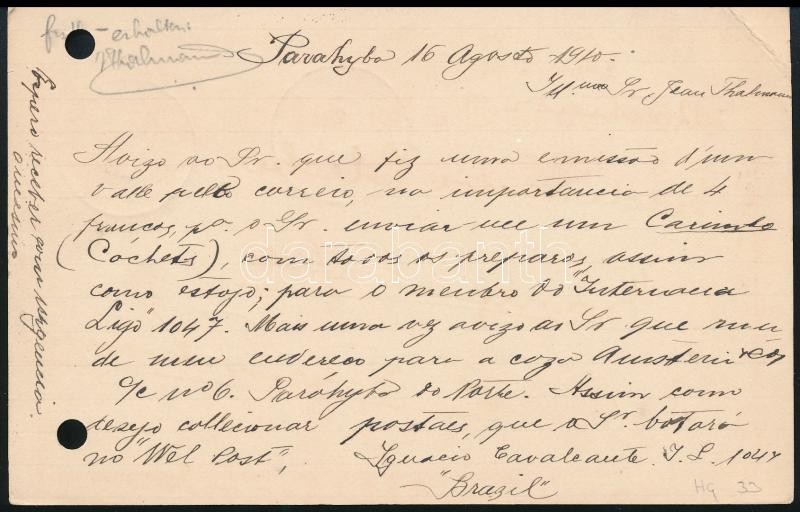 erhalten:
JThalmann
Parahyba 16 Agosto 1910.
Ill.mo Sr. Jean Thalmann
Avizo ao Sr. que fiz uma emissão d'um
valle pelo correio, na importancia de 4
francos, pa. o Sr. enviar me um Carimbo
(Cochets), com todos os preparos, assim
como estojo; para o membro do "Internacia
Ligo" 1047. Mais uma vez avizo ao Sr que mu
de meu endereco para a caza
c/c nº 6. Parahyba do Norte. Assim como
desejo colleccionar postaes, que o Sr. botará
no "Wel Post",
Ignacio Cavalcante. I. L. 1047
"Brazil"
Espero receber com urgencia
o mesmo
darabanth
HG 33